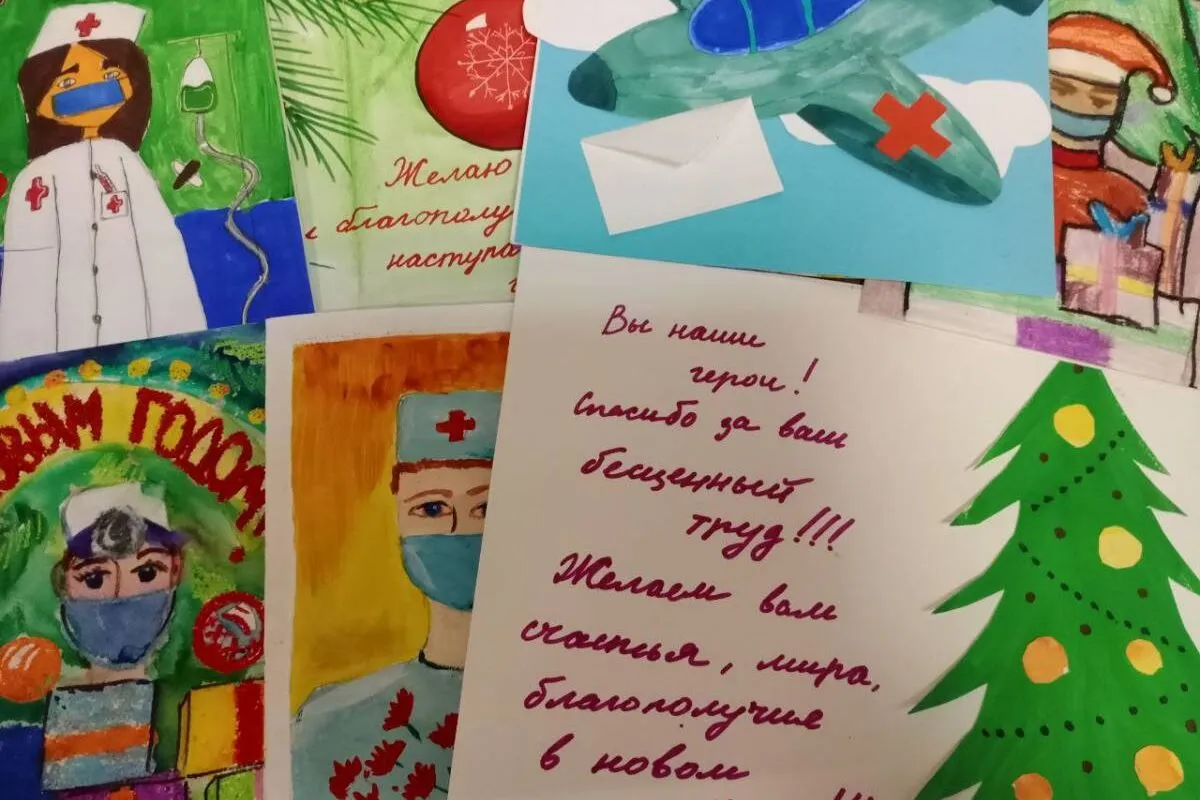 Желаю
благополу
наступа
ОВЫМ ГОДОМ!
Вы наши
герои!
Спасибо за ваш
бесценный
труд!!!
Желаем вам
счастья, мира,
благополучия
в новом
!!!